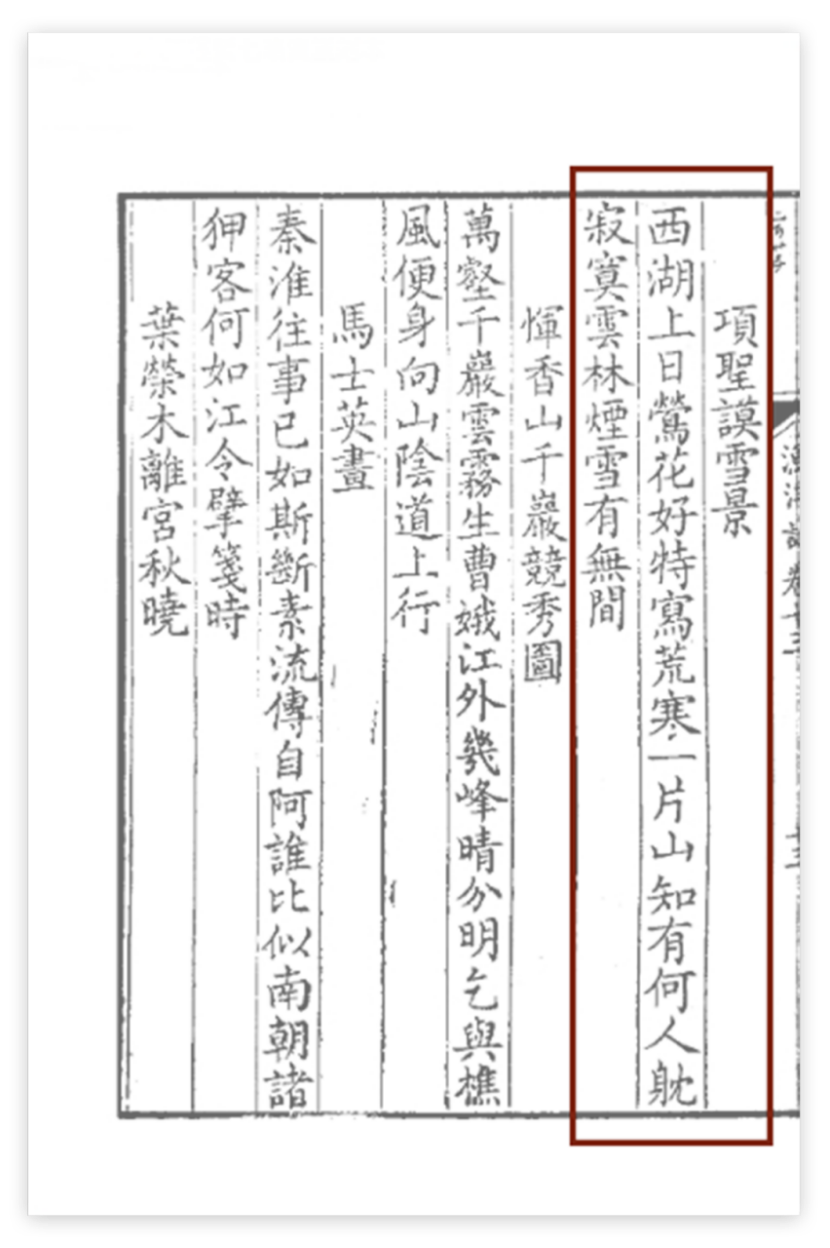 項聖謨雪景
西湖上日鶯花好特寫荒寒一片山知有何人躭
寂寞雲林煙雪有無間
惲香山千巖競秀圖
萬壑千巖雲霧生曹娥江外幾峰晴分明乞與樵
風便身向山陰道上行
馬士英畫
秦淮往事已如斯斷素流傳自阿誰比似南朝諸
狎客何如江令擘箋時
葉榮木離宮秋曉